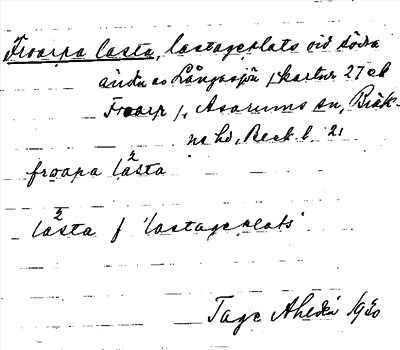 Froarpa lasta, lastageplats vid södra
ändan av Långasjön (kartur 27 ek
Froarp), Asarums sn, Bräk-
ne hd, Blek. l. 21
froapa lasta
lasta f 'lastageplats'
Tage Ahldén 1930